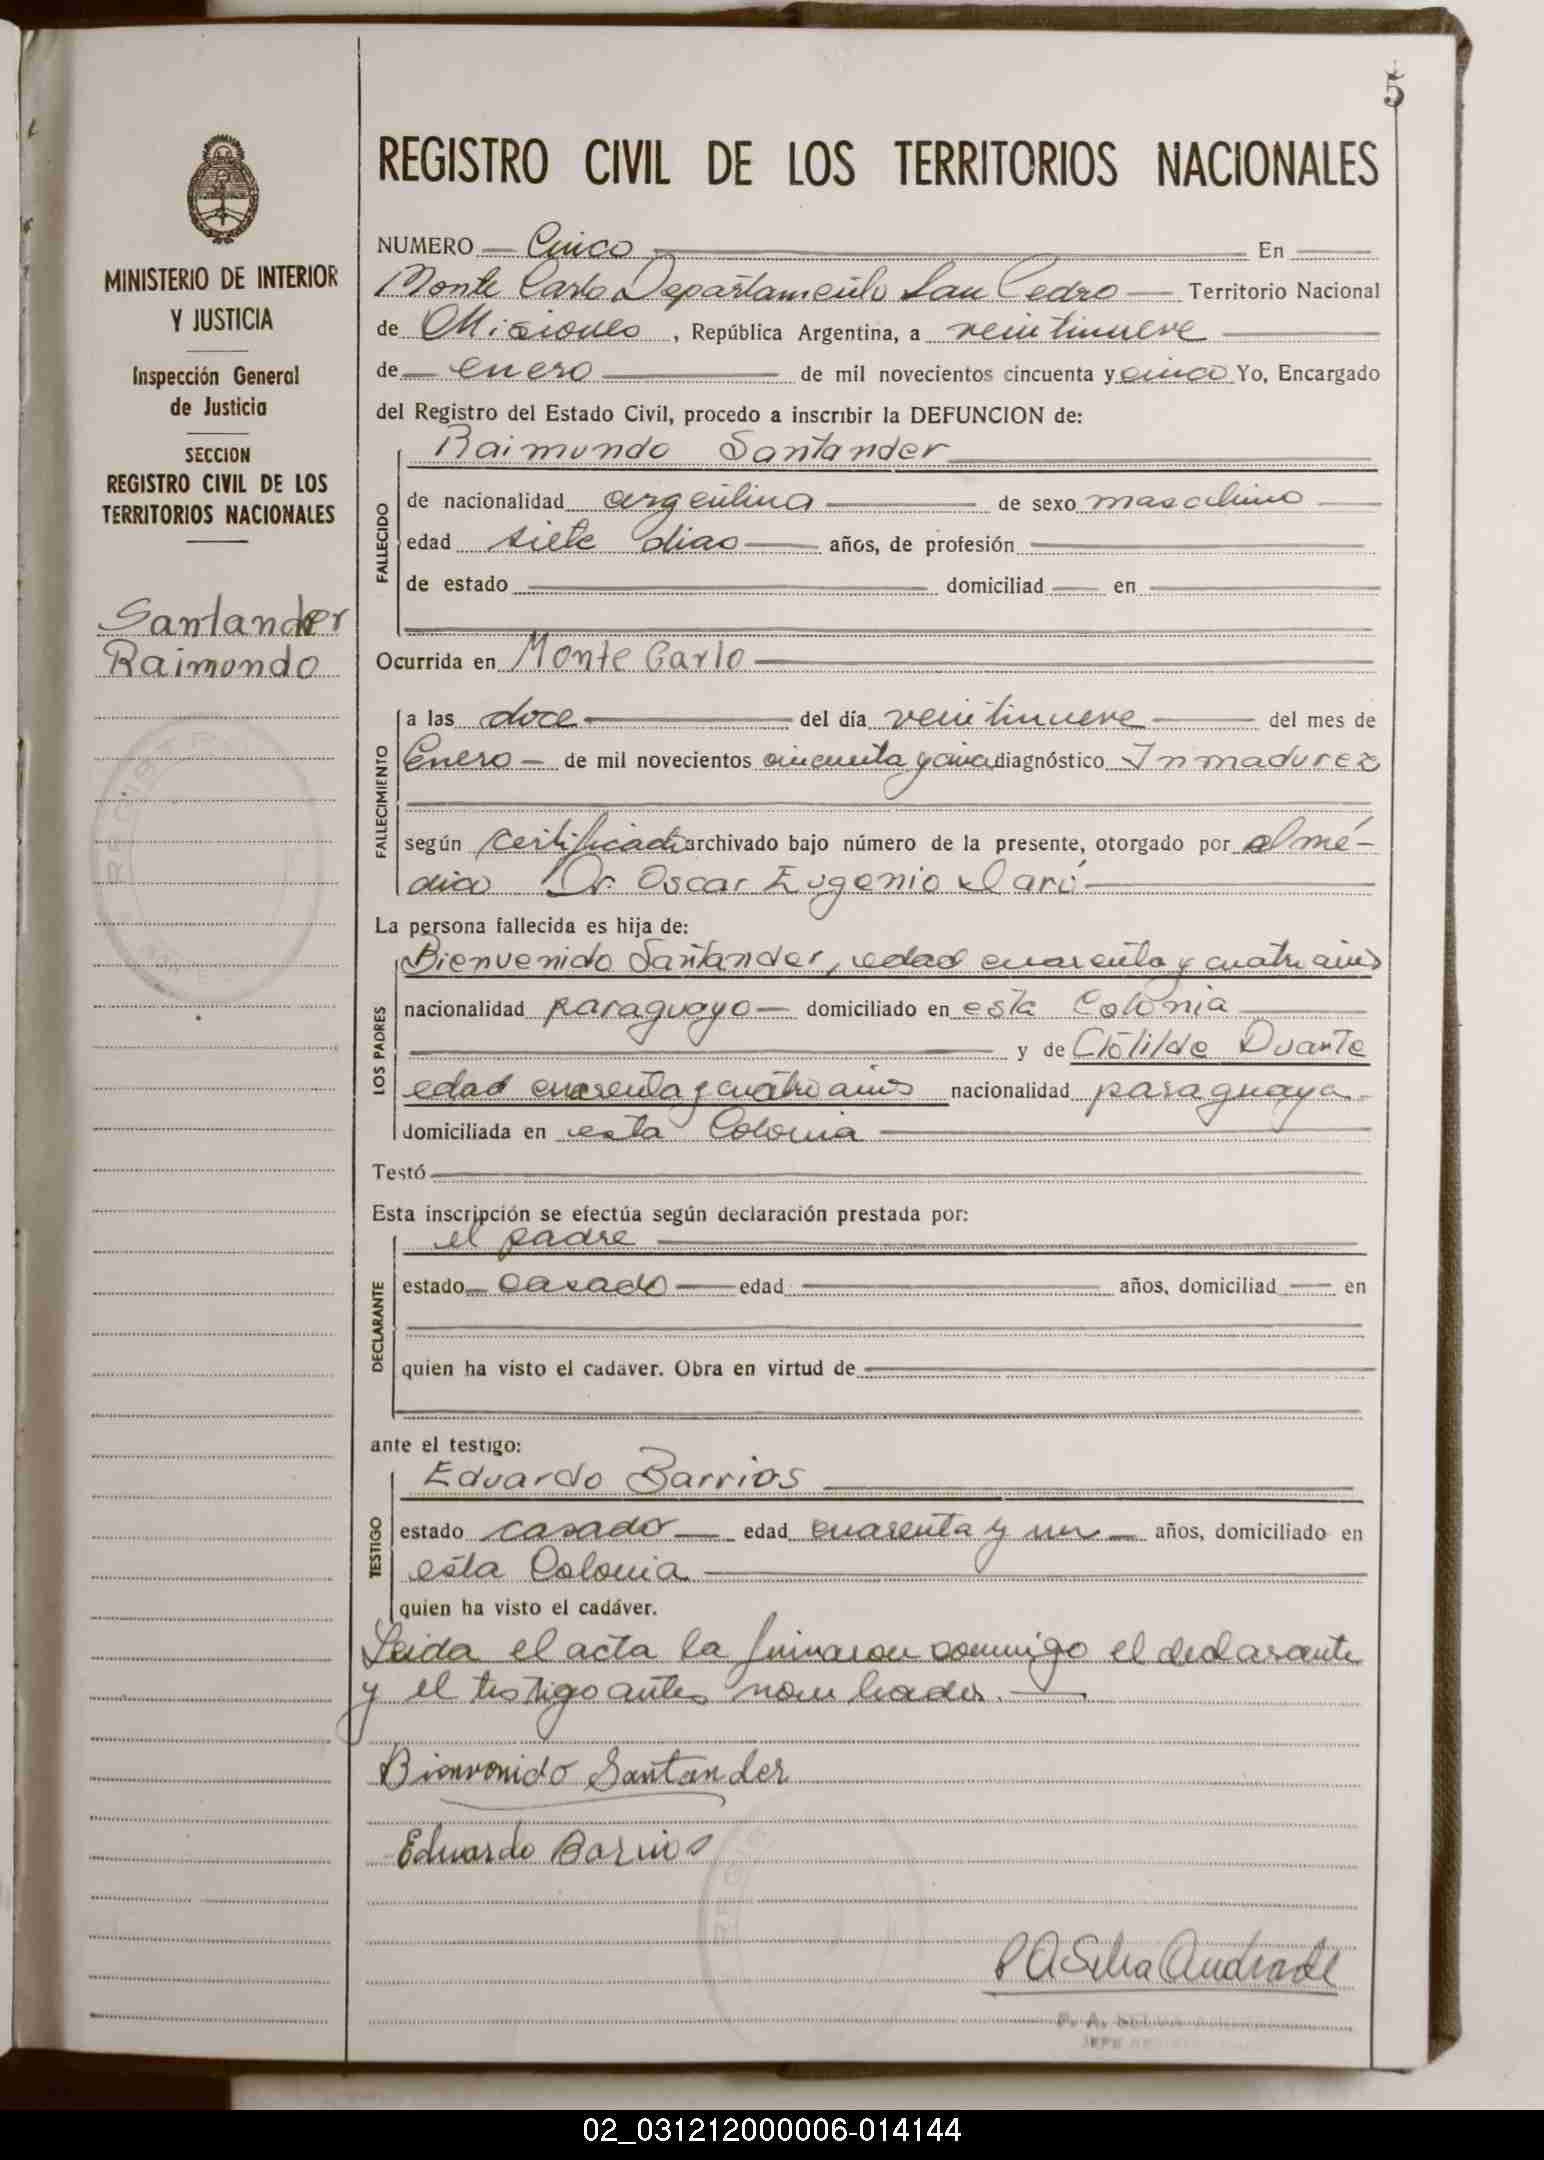 5
REGISTRO CIVIL DE LOS TERRITORIOS NACIONALES
MINISTERIO DE INTERIOR
Y JUSTICIA
Inspección General
de Justicia
SECCION
REGISTRO CIVIL DE LOS
TERRITORIOS NACIONALES
Santander
Raimundo
NUMERO Cinco En
Monte Carlo Departamento San Pedro Territorio Nacional
de Misiones, República Argentina, a veintinueve
de enero de mil novecientos cincuenta y cinco Yo, Encargado
del Registro del Estado Civil, procedo a inscribir la DEFUNCION de:
FALLECIDO
Raimundo Santander
de nacionalidad argentina de sexo masculino
edad siete dias años, de profesión
de estado domiciliad en
Ocurrida en Monte Carlo
FALLECIMIENTO
a las doce del día veintinueve del mes de
Enero de mil novecientos cincuenta y cinco diagnóstico Inmadurez
según certificado archivado bajo número de la presente, otorgado por el mé-
dico Dr. Oscar Eugenio
La persona fallecida es hija de:
LOS PADRES
Bienvenido Santander, edad cuarenta y cuatro años
nacionalidad paraguayo domiciliado en esta Colonia
y de Clotilde Duarte
edad cuarenta y cuatro años nacionalidad paraguaya
domiciliada en esta Colonia
Testó
Esta inscripción se efectúa según declaración prestada por:
DECLARANTE
el padre
estado casado edad años, domiciliad en
quien ha visto el cadaver. Obra en virtud de
ante el testigo:
TESTIGO
Eduardo Barrios
estado casado edad cuarenta y un años, domiciliado en
esta Colonia
quien ha visto el cadáver.
Leida el acta la firmaron conmigo el declarante
y el testigo antes nombrados.
Bienvenido Santander
Eduardo Barrios
P A Silva Andrade
02_031212000006-014144